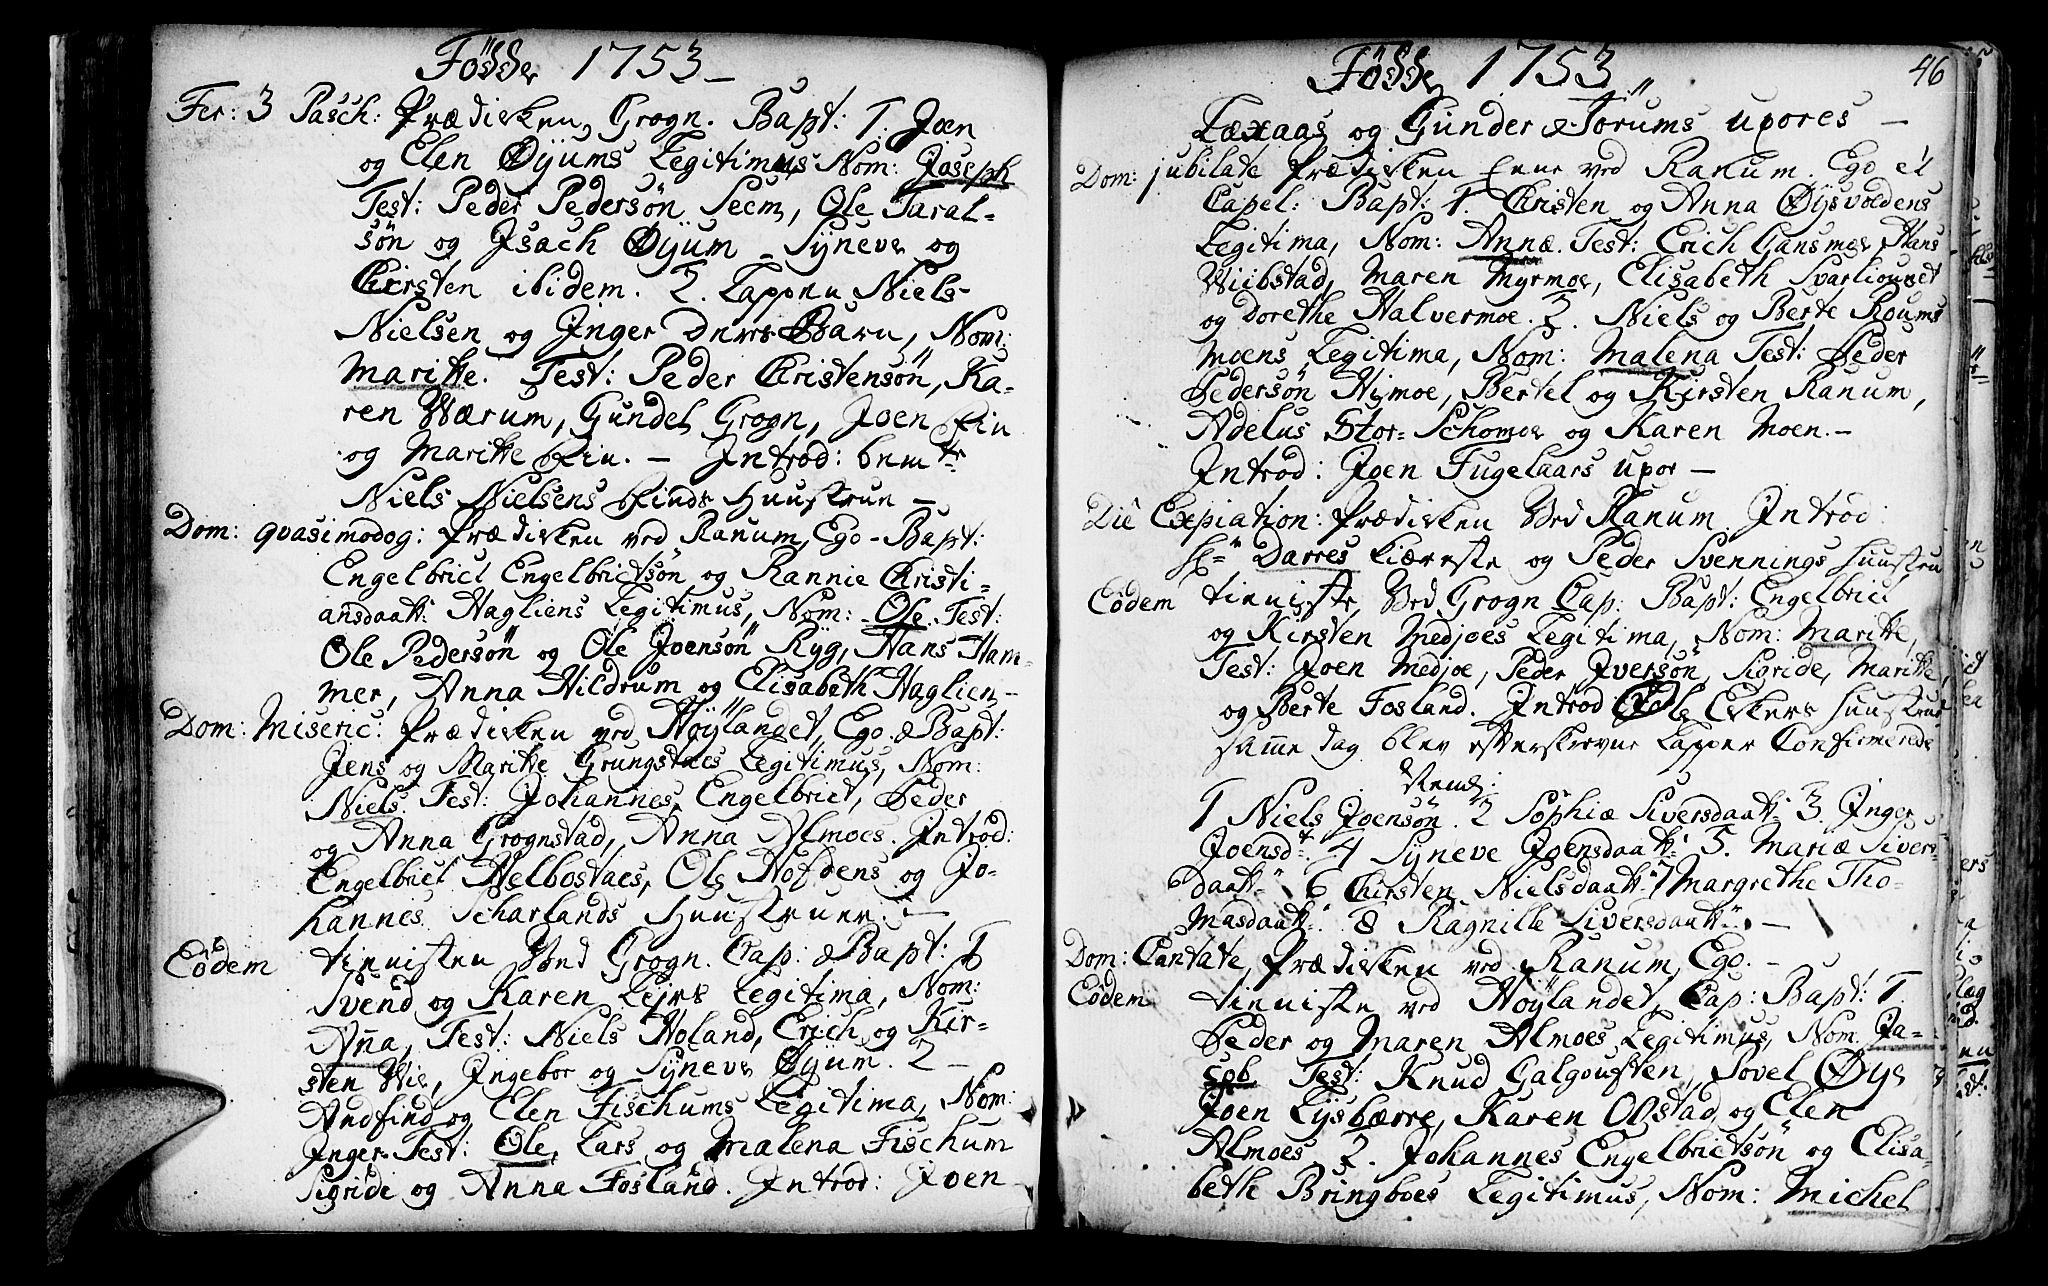 Födde 1753 –
Fer: 3 Pasch: Prædiken, Grogn. Bapt: 1. Joen
og Elen Øÿums Legitimus Nom: Joseph
Test: Peder Pedersön Seem, Ole Taral-
sön og Jsach Øÿum Sÿneve og
Chirsten ibidem. 2. Lappen Niels
Nielsen og Jnger Barn, Nom:
Maritte. Test: Peder Christensön, Ka-
ren Wærum, Gundel Grogn, Joen Lin
og Maritte Lin. – Jntrod: bem.te
Niels Nielsens Huustrue –
Dom: qvasimodog: Prædiken ved Ranum, Ego – Bapt:
Engelbrict Engelbrictsön og Rannie Christi-
ansdaatt: Hagliens Legitimus, Nom: Ole. Test:
Ole Pedersön og Ole Joensön Ryg, Hans Ham-
mer, Anna Hildrum og Elisabeth Haglien –
Dom: Miseric: Prædiken ved Höÿlandet, Ego. Bapt:
Jens og Maritte Grungstads Legitimus, Nom:
Niels Test: Johannes, Engelbrict, Peder
og Anna Grognstad, Anna Almoes. Jntrod:
Engelbrict Helbostads, Ole Hofdens og Jo-
hannes Scharlands Huustruer. –
Eôdem tienisten Ved Grogn. Cap: Bapt: 1
Svend og Karen Lejrs Legitima, Nom:
Anna, Test: Niels Holand, Erich og Kir-
sten Wie, Jngebor og Sÿneve Øÿum. 2 –
Andfind og Elen Fischums Legitima, Nom:
Jnger Test: Ole, Lars og Malena Fischum
Sigride og Anna Fosland. Jntrod: Joen
Födde 1753 46
Laxaas og Gunder Törums upores –
Dom: jubilate Prædiken Ene ved Ranum. Ego et
Capel: Bapt: 1. Christen og Anna Øÿsvoldens
Legitima, Nom: Annæ. Test: Erich Gansmoe, Hans
Wiibstad, Maren Myrmoe, Elisabeth Svarliounet
og Dorethe Halvermoe. 2. Niels og Berte Roums
moens Legitima, Nom: Malena Test: Peder
Pedersön Himoe, Bertel og Kirsten Ranum,
Adelus Stor-Schomoe og Karen Moen. –
Jntrod: Joen Fugelaars upor –
Die Expiation: Prædiken Ved Ranum. Jntrod:
Hr. Darres kiæreste og Peder Svennings Huustru
Eôdem tieniste, Ved Grogn Cap: Bapt: Engelbrict
og Kirsten Medjoes Legitima, Nom: Maritte,
Test: Joen Medjoe, Peder Jversön, Sigride, Maritte,
og Berte Fosland. Jntrod Ole Ekkers Huustrue
samme dag blev efterskrevne Lapper Confirmerede
1 Niels Joensön. 2 Sophiæ Siversdaatt: 3. Jnger
Joensd: 4 Sÿneve Joensdaatt: 5. Mariæ Sivers-
daatt: 6 Chirsten Nielsdaatt: 7 Margrethe Tho-
masdaatt: 8 Ragnille Siversdaatt: –
Dom: Cantate, Prædiken ved Ranum, Ego. –
Eôdem tieniste ved Höÿlandet, Cap: Bapt: 1.
Peder og Maren Almoes Legitimus, Nom: Ja-
cob Test: Knud Galgouften, Sovel Øÿe
Joen Lysbærre, Karen Olstad og Elen
Almoes. 2. Johannes Engelbrictsön og Elisa-
beth Bringboes Legitimus, Nom: Michel